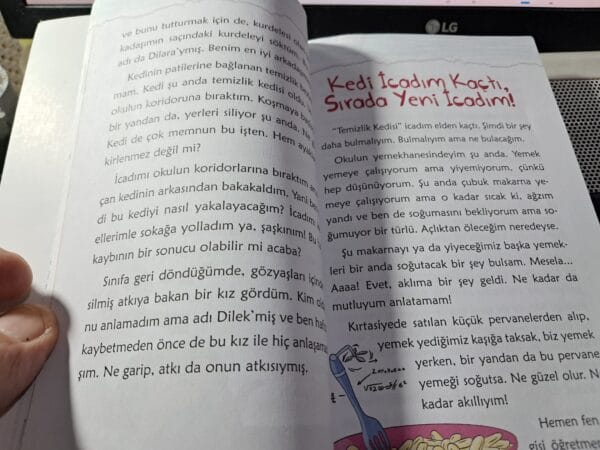 LG
ve bunu tutturmak için de, kurdelesi
kadaşımın saçındaki kurdeleyi söktüm.
adı da Dilara'ymış. Benim en iyi
Kedinin patilerine bağlanan temizlik
mam. Kedi şu anda temizlik kedisi oldu.
okulun koridoruna bıraktım. Koşmaya
bir yandan da, yerleri siliyor şu anda.
Kedi de çok memnun bu işten. Hem
kirlenmez değil mi?
İcadımı okulun koridorlarına bıraktım
çan kedinin arkasından bakakaldım. Yani
di bu kediyi nasıl yakalayacağım? İcadımı
ellerimle sokağa yolladım ya, şaşkınım! Bu
kaybının bir sonucu olabilir mi acaba?
Sınıfa geri döndüğümde, gözyaşları
silmiş atkıya bakan bir kız gördüm. Kim
nu anlamadım ama adı Dilek'miş ve ben
kaybetmeden önce de bu kız ile hiç
şım. Ne garip, atkı da onun atkısıymış.
Kedi İcadım Kaçtı,
Sırada Yeni İcadım!
"Temizlik Kedisi" icadım elden kaçtı. Şimdi bir şey
daha bulmalıyım. Bulmalıyım ama ne bulacağım.
Okulun yemekhanesindeyim şu anda. Yemek
yemeye çalışıyorum ama yiyemiyorum, çünkü
hep düşünüyorum. Şu anda çubuk makarna ye-
meye çalışıyorum ama o kadar sıcak ki, ağzım
yandı ve ben de soğumasını bekliyorum ama so-
ğumuyor bir türlü. Açlıktan öleceğim neredeyse.
Şu makarnayı ya da yiyeceğimiz başka yemek-
leri bir anda soğutacak bir şey bulsam. Mesela...
Aaaa! Evet, aklıma bir şey geldi. Ne kadar da
mutluyum anlatamam!
Kırtasiyede satılan küçük pervanelerden alıp,
yemek yediğimiz kaşığa taksak, biz yemek
yerken, bir yandan da bu pervane
yemeği soğutsa. Ne güzel olur. Ne
kadar akıllıyım!
Hemen fen
gisi öğretmen